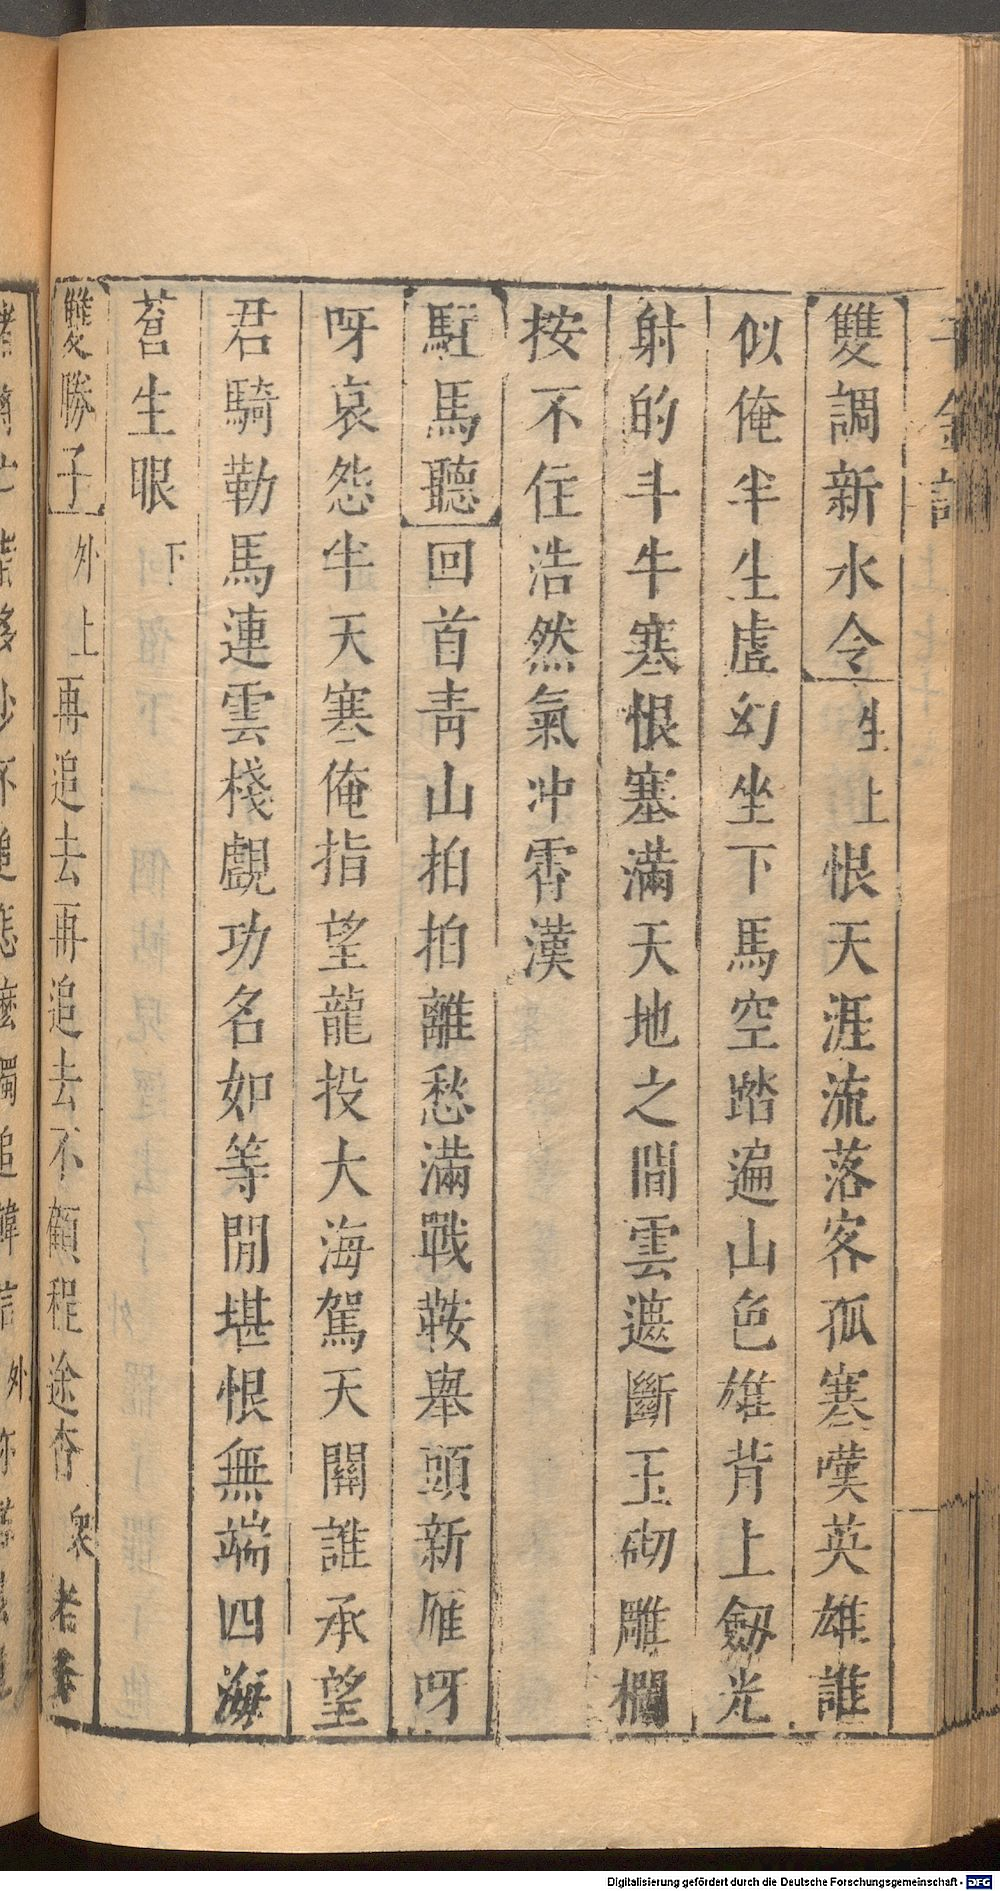 千金記
雙調新水令生上恨天涯流落客孤寒嘆英雄誰
似俺半生虛幻坐下馬空踏遍山色雄背上劔光
射的斗牛寒恨塞滿天地之間雲遮斷玉砌雕欄
按不住浩然氣冲霄漢
駐馬聽回首青山拍拍離愁滿戰鞍舉頭新雁呀
呀哀怨半天寒俺指望龍投大海駕天關誰承望
君騎勒馬連雲棧覷功名如等閒堪恨無端四海
蒼生眼下
雙勝子外上再追去再追去不顧程途杳衆
Digitalisierung gefördert durch die Deutsche Forschungsgemeinschaft - DFG